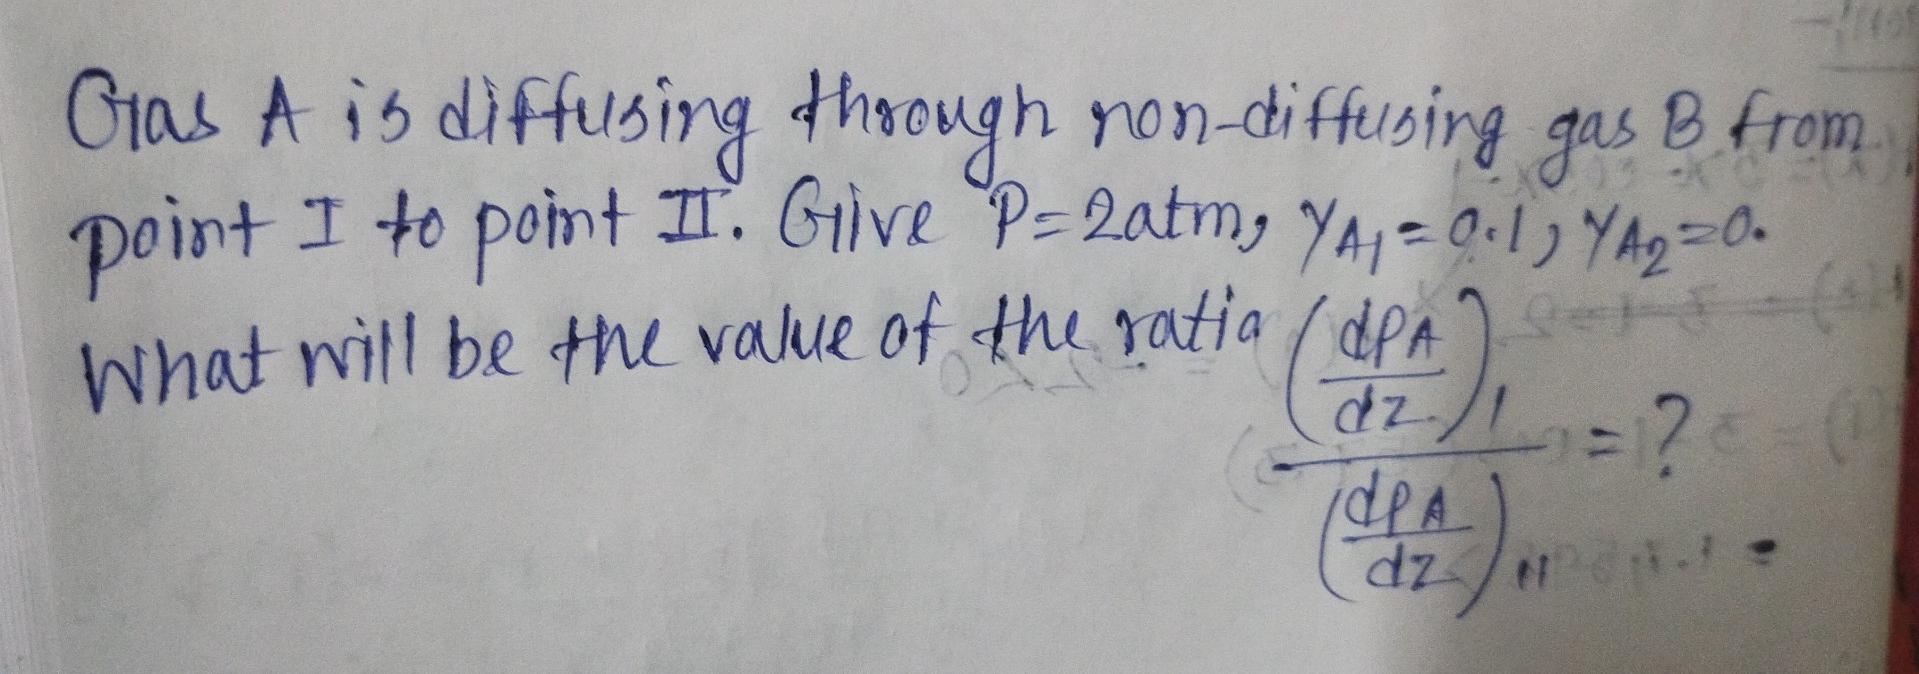 Gas A is diffusing through non-diffusing gas B from
point I to point II. Give P=2atm, YA1=0.1, YA2=0.
What will be the value of the ratio (dPA/dz)I / (dPA/dz)II = ?